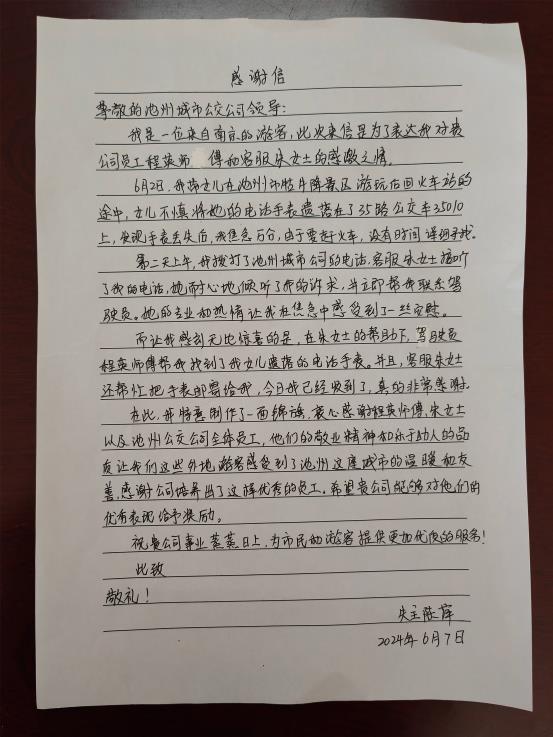 感谢信
尊敬的池州城市公交公司领导:
我是一位来自南京的游客,此次来信是为了表达我对贵
公司员工程英师 傅和客服朱女士的感激之情。
6月2日,我带女儿在池州市牯牛降景区游玩后回火车站的
途中,女儿不慎将她的电话手表遗落在了35路公交车35010
上,发现手表丢失后,我焦急万分,由于要赶火车,没有时间详细寻找。
第二天上午,我拨打了池州城市公司的电话,客服朱女士接听
了我的电话,她耐心地倾听了我的诉求,并立即帮我联系驾
驶员。她的专业和热情让我在焦急中感受到了一丝安慰。
而让我感到无比惊喜的是,在朱女士的帮助下,驾驶员
程英师傅帮我找到了我女儿遗落的电话手表。并且,客服朱女士
还帮忙把手表邮寄给我,今日我已经收到了,真的非常感谢。
在此,我特意制作了一面锦旗,衷心感谢程英师傅、朱女士
以及池州公交公司全体员工,他们的敬业精神和乐于助人的品
质让我们这些外地游客感受到了池州这座城市的温暖和友
善,感谢公司培养出了这样优秀的员工。希望贵公司能够对他们的
优秀表现给予奖励。
祝贵公司事业蒸蒸日上,为市民和游客提供更加优质的服务!
此致
敬礼!
失主陈萍
2024年6月7日